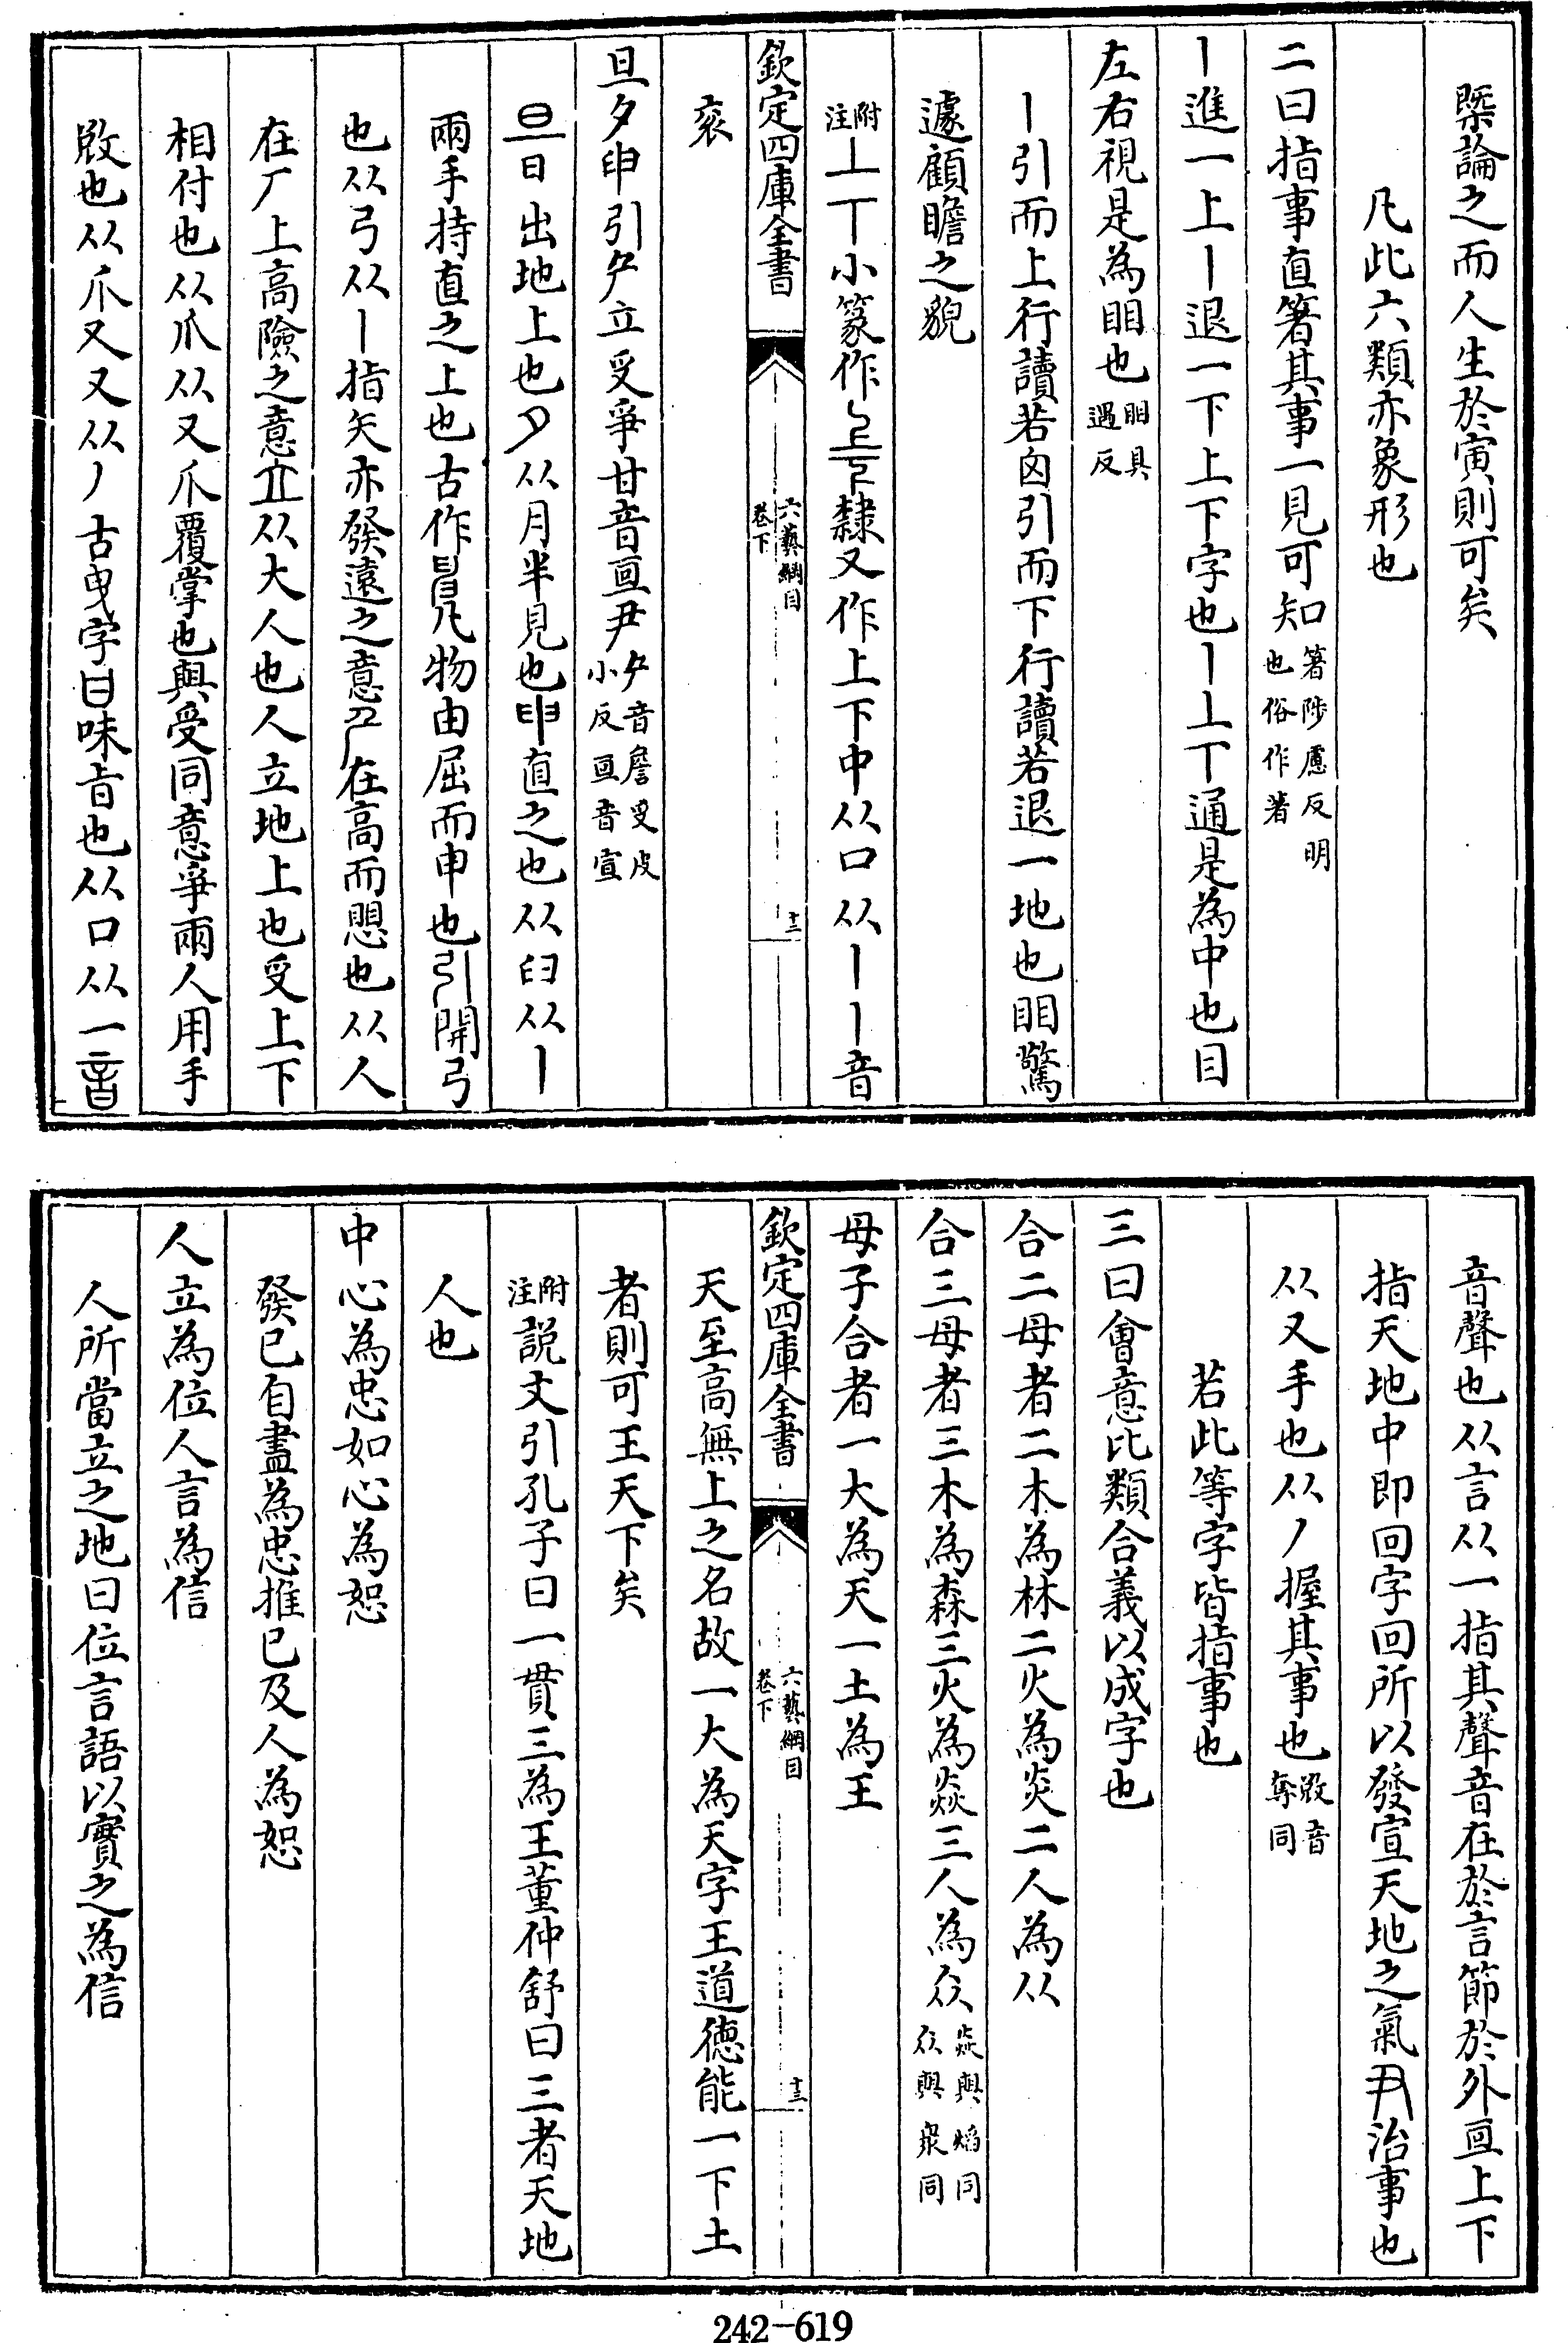 槩論之而人生於寅則可矣
凡此六類亦象形也
二曰指事直箸其事一見可知箸陟慮反明也俗作著
丨進一上丨退一下上下字也丨丄丅通是為中也目
左右視是為䀠也䀠具遇反
丨引而上行讀若囟引而下行讀若退一地也䀠驚
遽顧瞻之貌
附注丄丅小篆作隸又作上下中从口从丨丨音
欽定四庫全書
六藝綱目
卷下
十三
衮
旦夕申引产立𠬪爭甘音亘尹产音詹𠬪皮小反亘音宣
旦日出地上也夕从月半見也申直之也从臼从丨
兩手持直之上也古作凡物由屈而申也引開弓
也从弓从丨指矢亦發遠之意在高而愳也从人
在厂上高險之意立从大人也人立地上也𠬪上下
相付也从爪从又爪覆掌也與受同意爭兩人用手
敚也从爪又又从丿古曳字甘味旨也从口从一音
音聲也从言从一指其聲音在於言節於外亘上下
指天地中即回字回所以發宣天地之氣尹治事也
从又手也从丿握其事也敚音奪同
若此等字皆指事也
三曰會意比類合義以成字也
合二母者二木為林二火為炎二人為从
合三母者三木為森三火為焱三人為㐺焱與焰同㐺與衆同
母子合者一大為天一土為王
欽定四庫全書
六藝綱目
卷下
十三
天至高無上之名故一大為天字王道德能一下土
者則可王天下矣
附注說文引孔子曰一貫三為王董仲舒曰三者天地
人也
中心為忠如心為恕
發已自盡為忠推已及人為恕
人立為位人言為信
人所當立之地曰位言語以實之為信
242-619